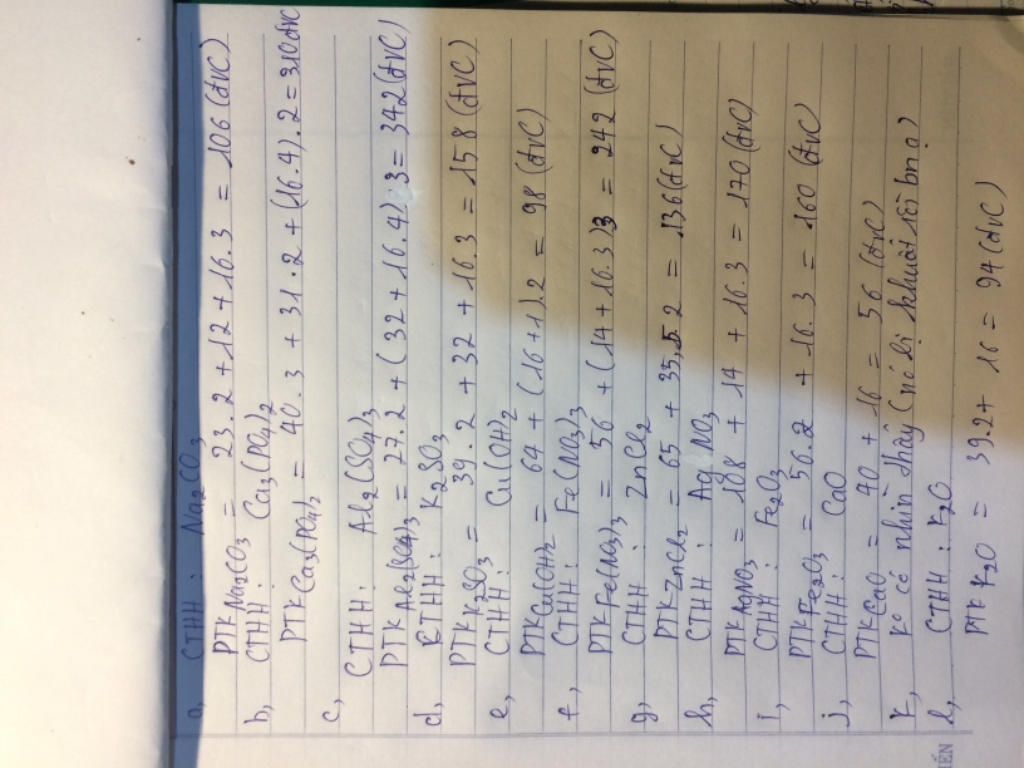 a, CTHH : Na2CO3
PTK Na2CO3 = 23.2 + 12 + 16.3 = 106 (đvC)
b, CTHH : Ca3(PO4)2
PTK Ca3(PO4)2 = 40.3 + 31.2 + (16.4).2 = 310 đvC
c, CTHH : Al2(SO4)3
PTK Al2(SO4)3 = 27.2 + (32 + 16.4).3 = 342 (đvC)
d, CTHH : K2SO3
PTK K2SO3 = 39.2 + 32 + 16.3 = 158 (đvC)
e, CTHH : Cu(OH)2
PTK Cu(OH)2 = 64 + (16+1).2 = 98 (đvC)
f, CTHH : Fe(NO3)3
PTK Fe(NO3)3 = 56 + (14 + 16.3)3 = 242 (đvC)
g, CTHH : ZnCl2
PTK ZnCl2 = 65 + 35,5.2 = 136 (đvC)
h, CTHH : AgNO3
PTK AgNO3 = 108 + 14 + 16.3 = 170 (đvC)
i, CTHH : Fe2O3
PTK Fe2O3 = 56.2 + 16.3 = 160 (đvC)
j, CTHH : CaO
PTK CaO = 40 + 16 = 56 (đvC)
k, ko có nhìn thấy (nó bị khuất rồi bn ạ)
l, CTHH : K2O
PTK K2O = 39.2 + 16 = 94 (đvC)